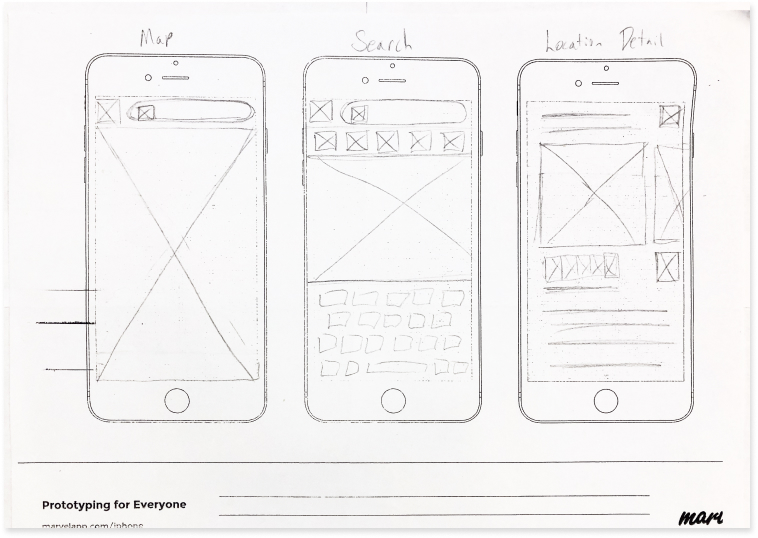 Map
Search
Location Detail
Prototyping for Everyone
marvelapp.com/iphone